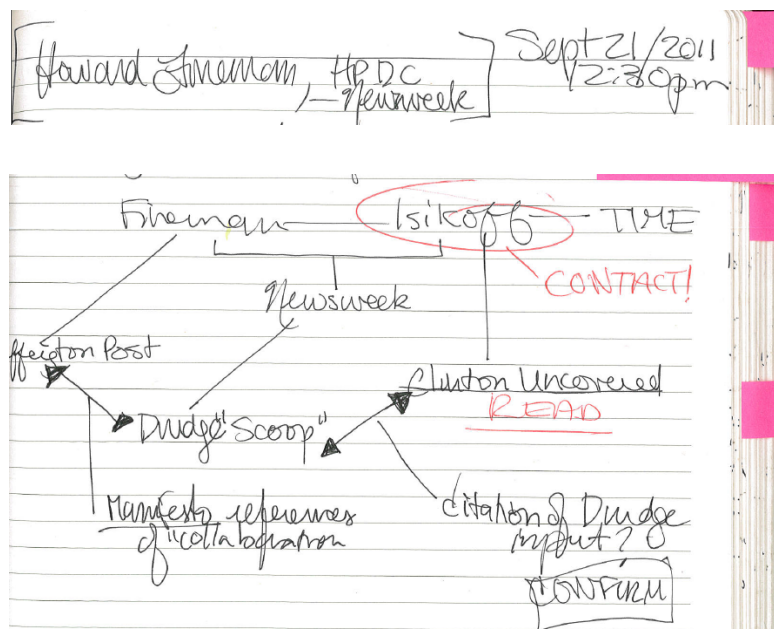 Howard Fineman, HPDC
- Newsweek
Sept 21/2011
12:30pm
Fineman Isikoff TIME
CONTACT!
Newsweek
ffington Post
Clinton Uncovered
READ
Drudge "Scoop"
Manifesto references
of "collaboration
citation of Drudge
input?
CONFIRM